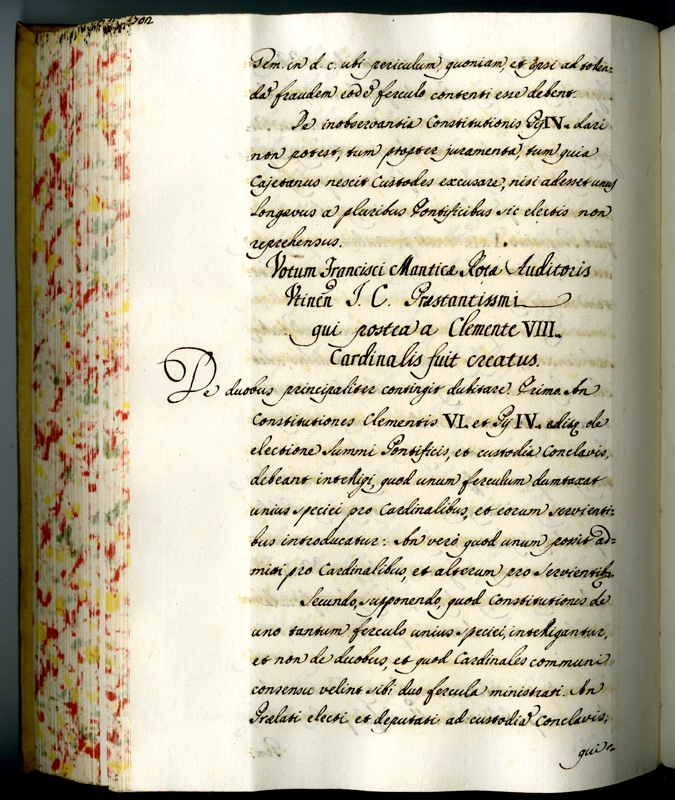 702
Tem. in d. c. ubi periculum, quoniam, et ipsi ad tollen=
dã fraudem eodẽ ferculo contenti esse debent.
De inobservantia Constitutionis Pij IV. dari
non potest, tum propter juramenta, tum quia
Cajetanus nescit Custodes excusare, nisi adesset unus
longevus a pluribus Pontificibus sic electis non
reprehensus.
Votum Francisci Manticæ Rotæ Auditoris
Utineñ J. C. Præstantissmi
qui postea a Clemente VIII.
Cardinalis fuit creatus.
De duobus principaliter contingit dubitare. Primo. An
Constitutiones Clementis VI. et Pij IV. editę de
electione Summi Pontificis, et custodia Conclavis,
debeant intelligi, quod unum ferculum dumtaxat
unius speciei pro Cardinalibus, et eorum servienti=
bus introducatur: An verò quod unum possit ad=
mitti pro Cardinalibus, et alterum pro servientibs.
Secundo, supponendo, quod Constitutiones de
uno tantum ferculo unius speciei, intelligantur,
et non de duobus, et quod Cardinales communi
consensu velint sibi duo fercula ministrari. An
Prelati electi et deputati ad custodiã Conclavis,
qui